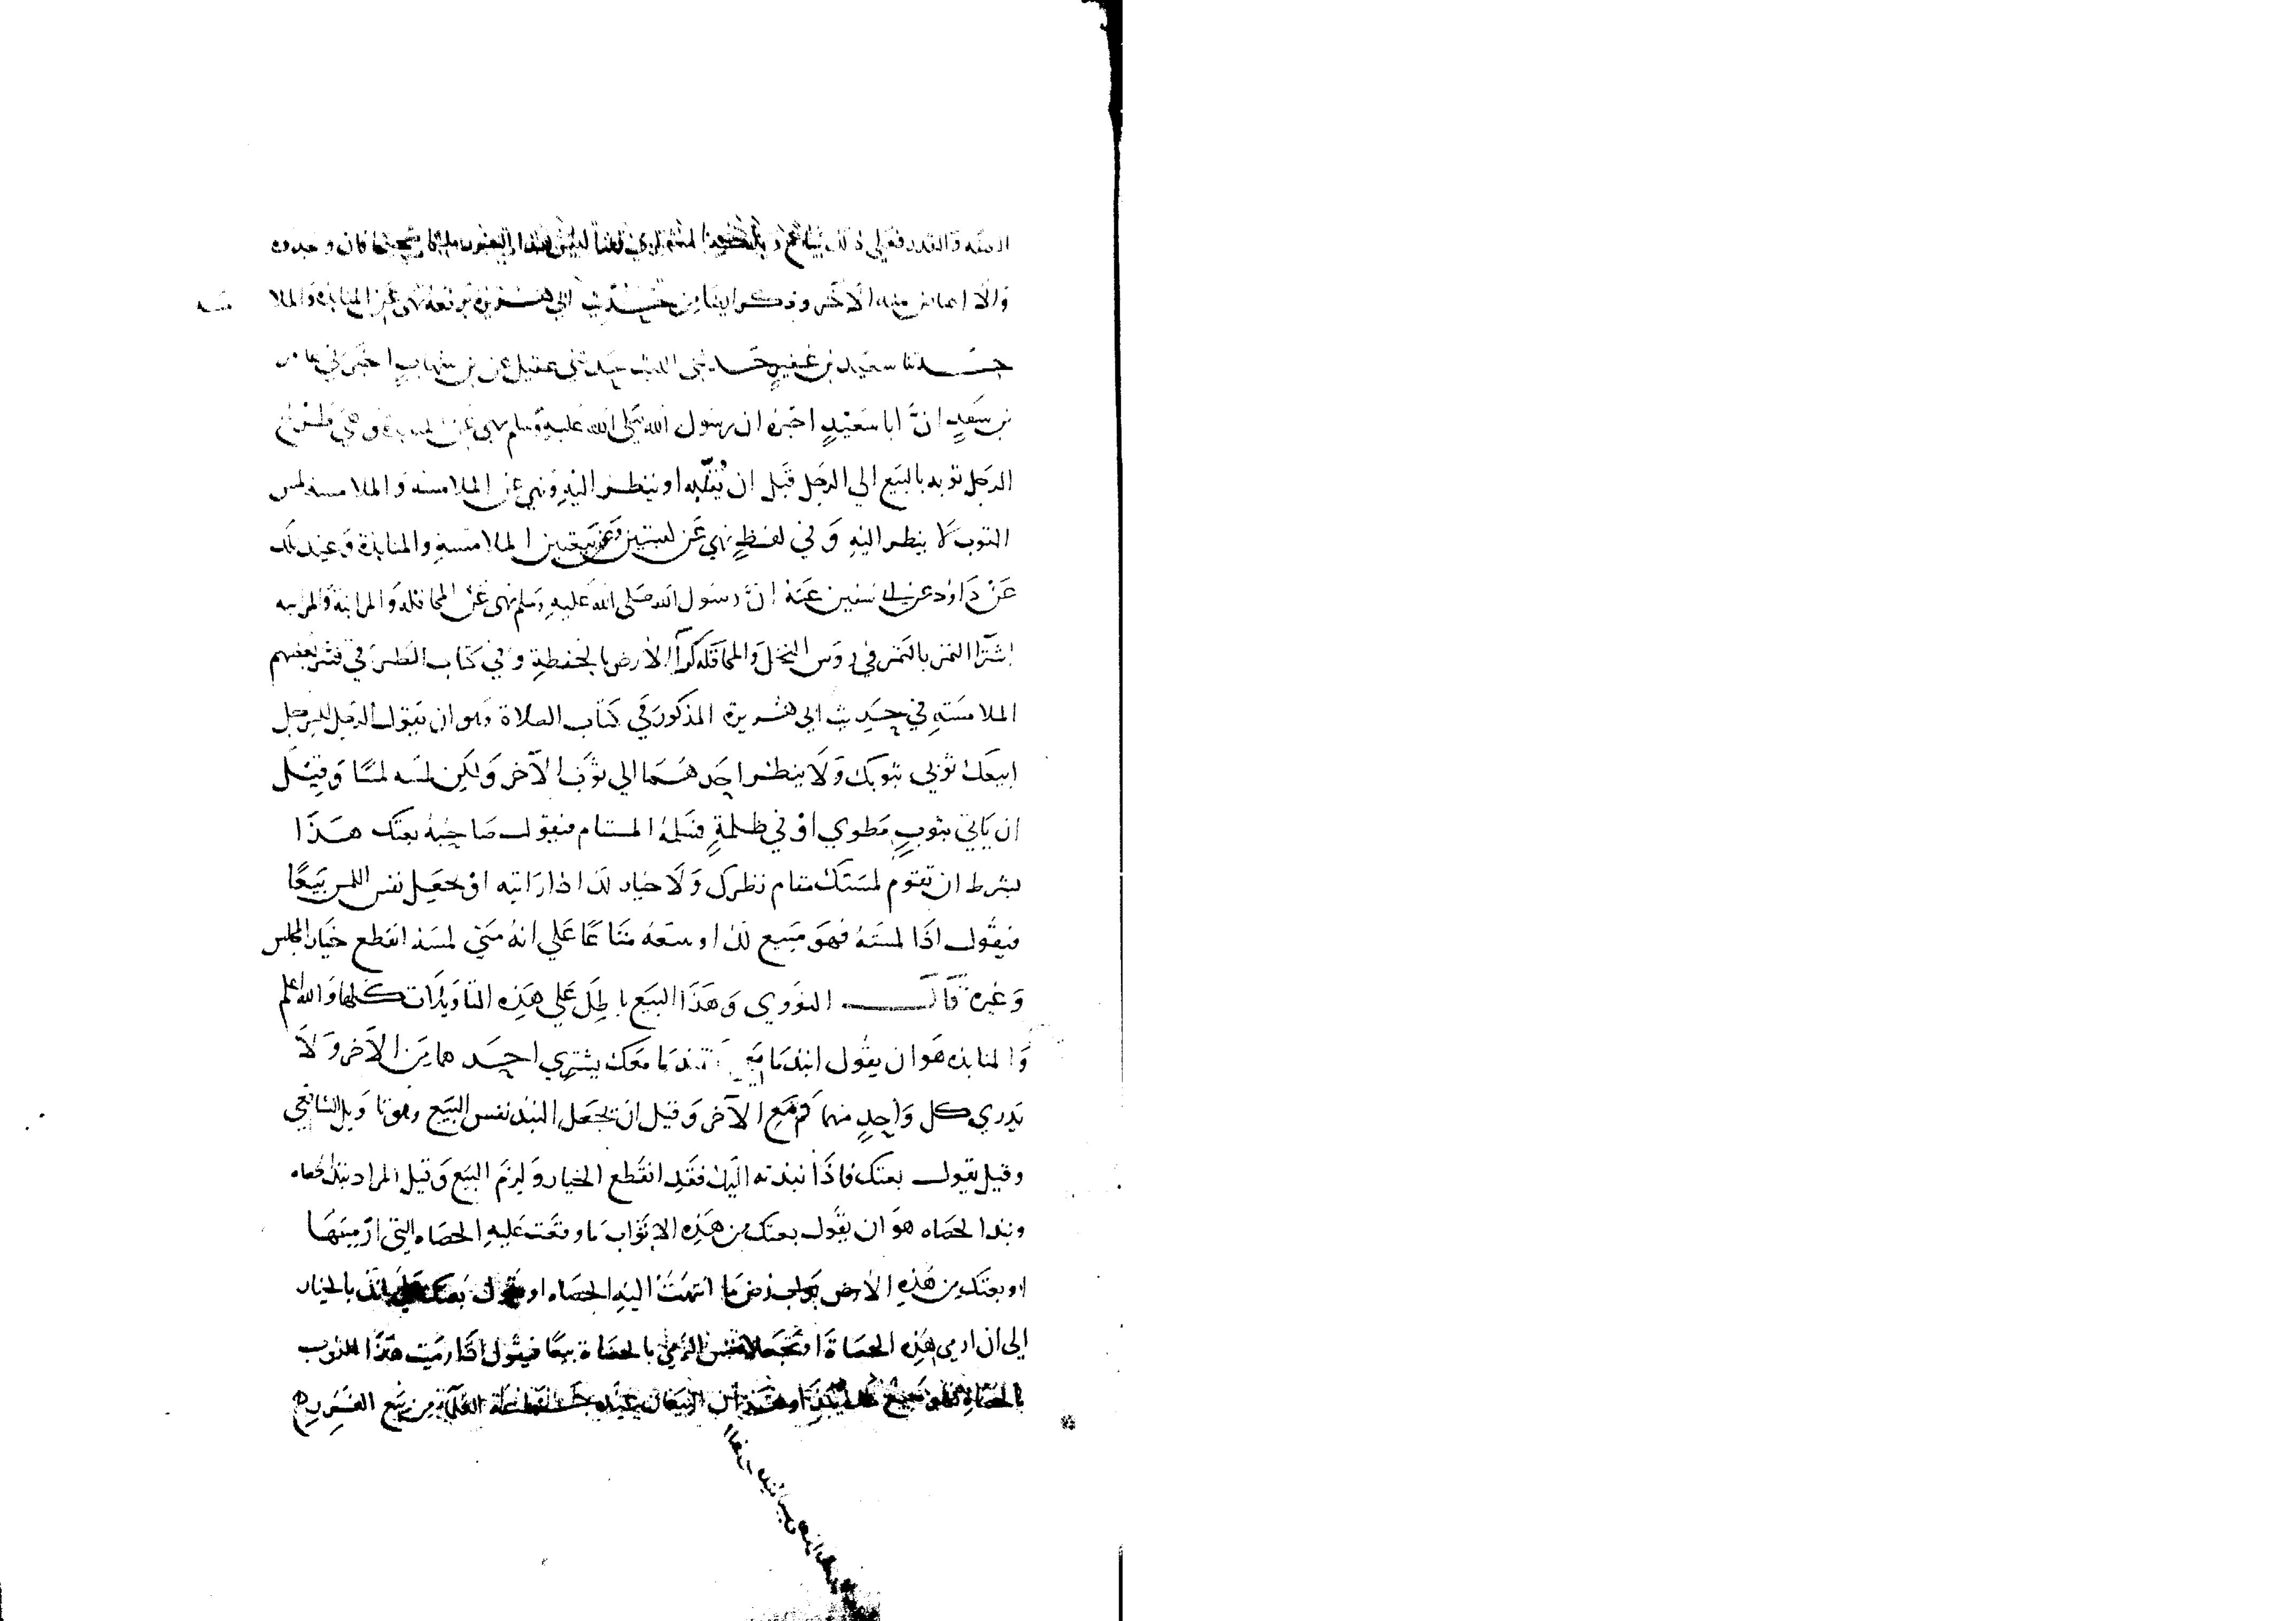 والا اعاض منه الآخر وذكر ايضا من حديث ابي هريرة يرفعه نهى عن المنابذة والملا مسه
حدثنا سعيد بن عفير حدثني الليث حدثني عقيل عن بن شهاب اخبرني عامر
بن سعدٍ انّ ابا سعيدٍ اخبره ان رسول الله صلى الله عليه وسلم نهى عن المنابذة وهي طرح
الرجل ثوبه بالبيع الي الرجل قبل ان يُقلّبه او ينظر اليهِ ونهى عن الملامسه والملامسه لمس
الثوب لا ينظر اليهِ وفي لفظٍ نهي عَن لبستين وعن بيعتين الملامسةِ والمنابذة وعنده
عَن دَاوُد عن ابي سفين عَنهُ انّ رسول الله صَلى الله عَليهِ وَسلم نهى عَن المحاقله وَالمزابنة والمزابنه
اشترا الثمر بالتمر في روس النخل وَالمحاقله كرآ الأرض بالحنطةِ وفي كتاب
الملامسَةِ في حديث ابي هريرة المذكور في كتاب الصلاة وهو ان يَقول الرجل للرجل
ابيعك ثوبي بثوبك وَلَا ينظر احَدهُمَا الي ثوبَ الآخر وَلكِن لمسَه لمسًا وَقِيْل
ان يَاتي بثوبٍ مَطوي اوْ في ظلمةٍ فيَلمسهُ المستام فيقول صَاحبهُ بعتك هَذَا
بشرط ان تقوم لمسَتك مقام نظرك وَلَا خيار لك اذا رَايته اوْ يجعَل نفس اللمس بَيعًا
فيقول اذَا لمسَتهُ فهوَ مَبيع لك او بيعهُ متَاعًا عَلي انهُ مَتي لمسَه انقطع خيار المجلس
وَغيره قَالَ النوَوي وَهَذا البيَع باطِل عَلي هَذِه التاويلَات كلهَا وَالله اعلم
وَالمنابذه هَو ان يقول انبذ مَا مَعي وتنبذ مَا مَعك يشتري احَدهما مِن الآخر وَلَا
يَدري كل وَاحِدٍ منهما كم مَع الآخر وَقيل ان يجعَل النبذ نفس البيَع وهو تاويل الشافعي
وقيل يقول بعتك فاذَا نبذته اليَك فقَد انقَطع الخيار وَلزمَ البيَع وَقيل المراد نبذ الحصاه
ونبذ الحصَاه هوَ ان يقُول بعتك من هَذِه الاثوَاب مَا وقعَت عَليهِ الحصَاه التي ارميهَا
او بعتك من هَذِهِ الأرض مَا انتهت اليهِ الحصَاه او يقول بعتك بالخيار
الى ان ارمي هَذِه الحصَاة اويَجعَلا نفس الرمي بالحصَاة بيعًا فيقُول اذَا رميت هَذَا الثوب
بالحصَاةِ فهو مَبيع مِن بيَع الغَرر